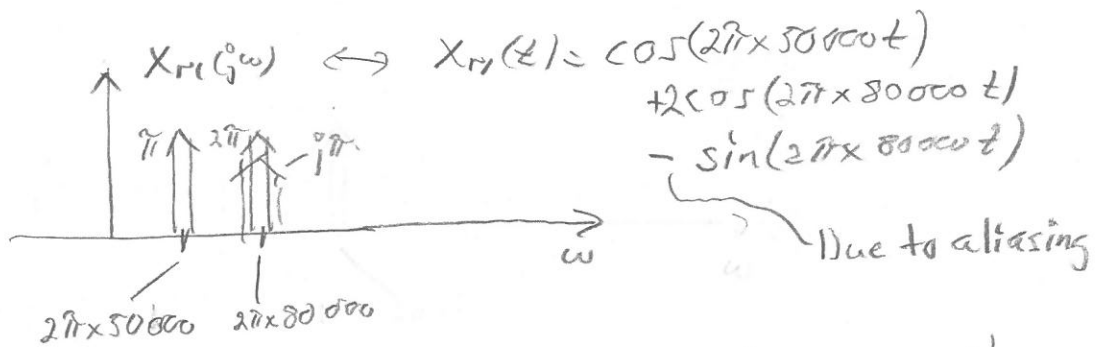 X_{r1}(jω) ↔ x_{r1}(t) = cos(2π×50000t)
+2cos(2π×80000t)
- sin(2π×80000t)
π 2π jπ
Due to aliasing
ω
2π×50000 2π×80000